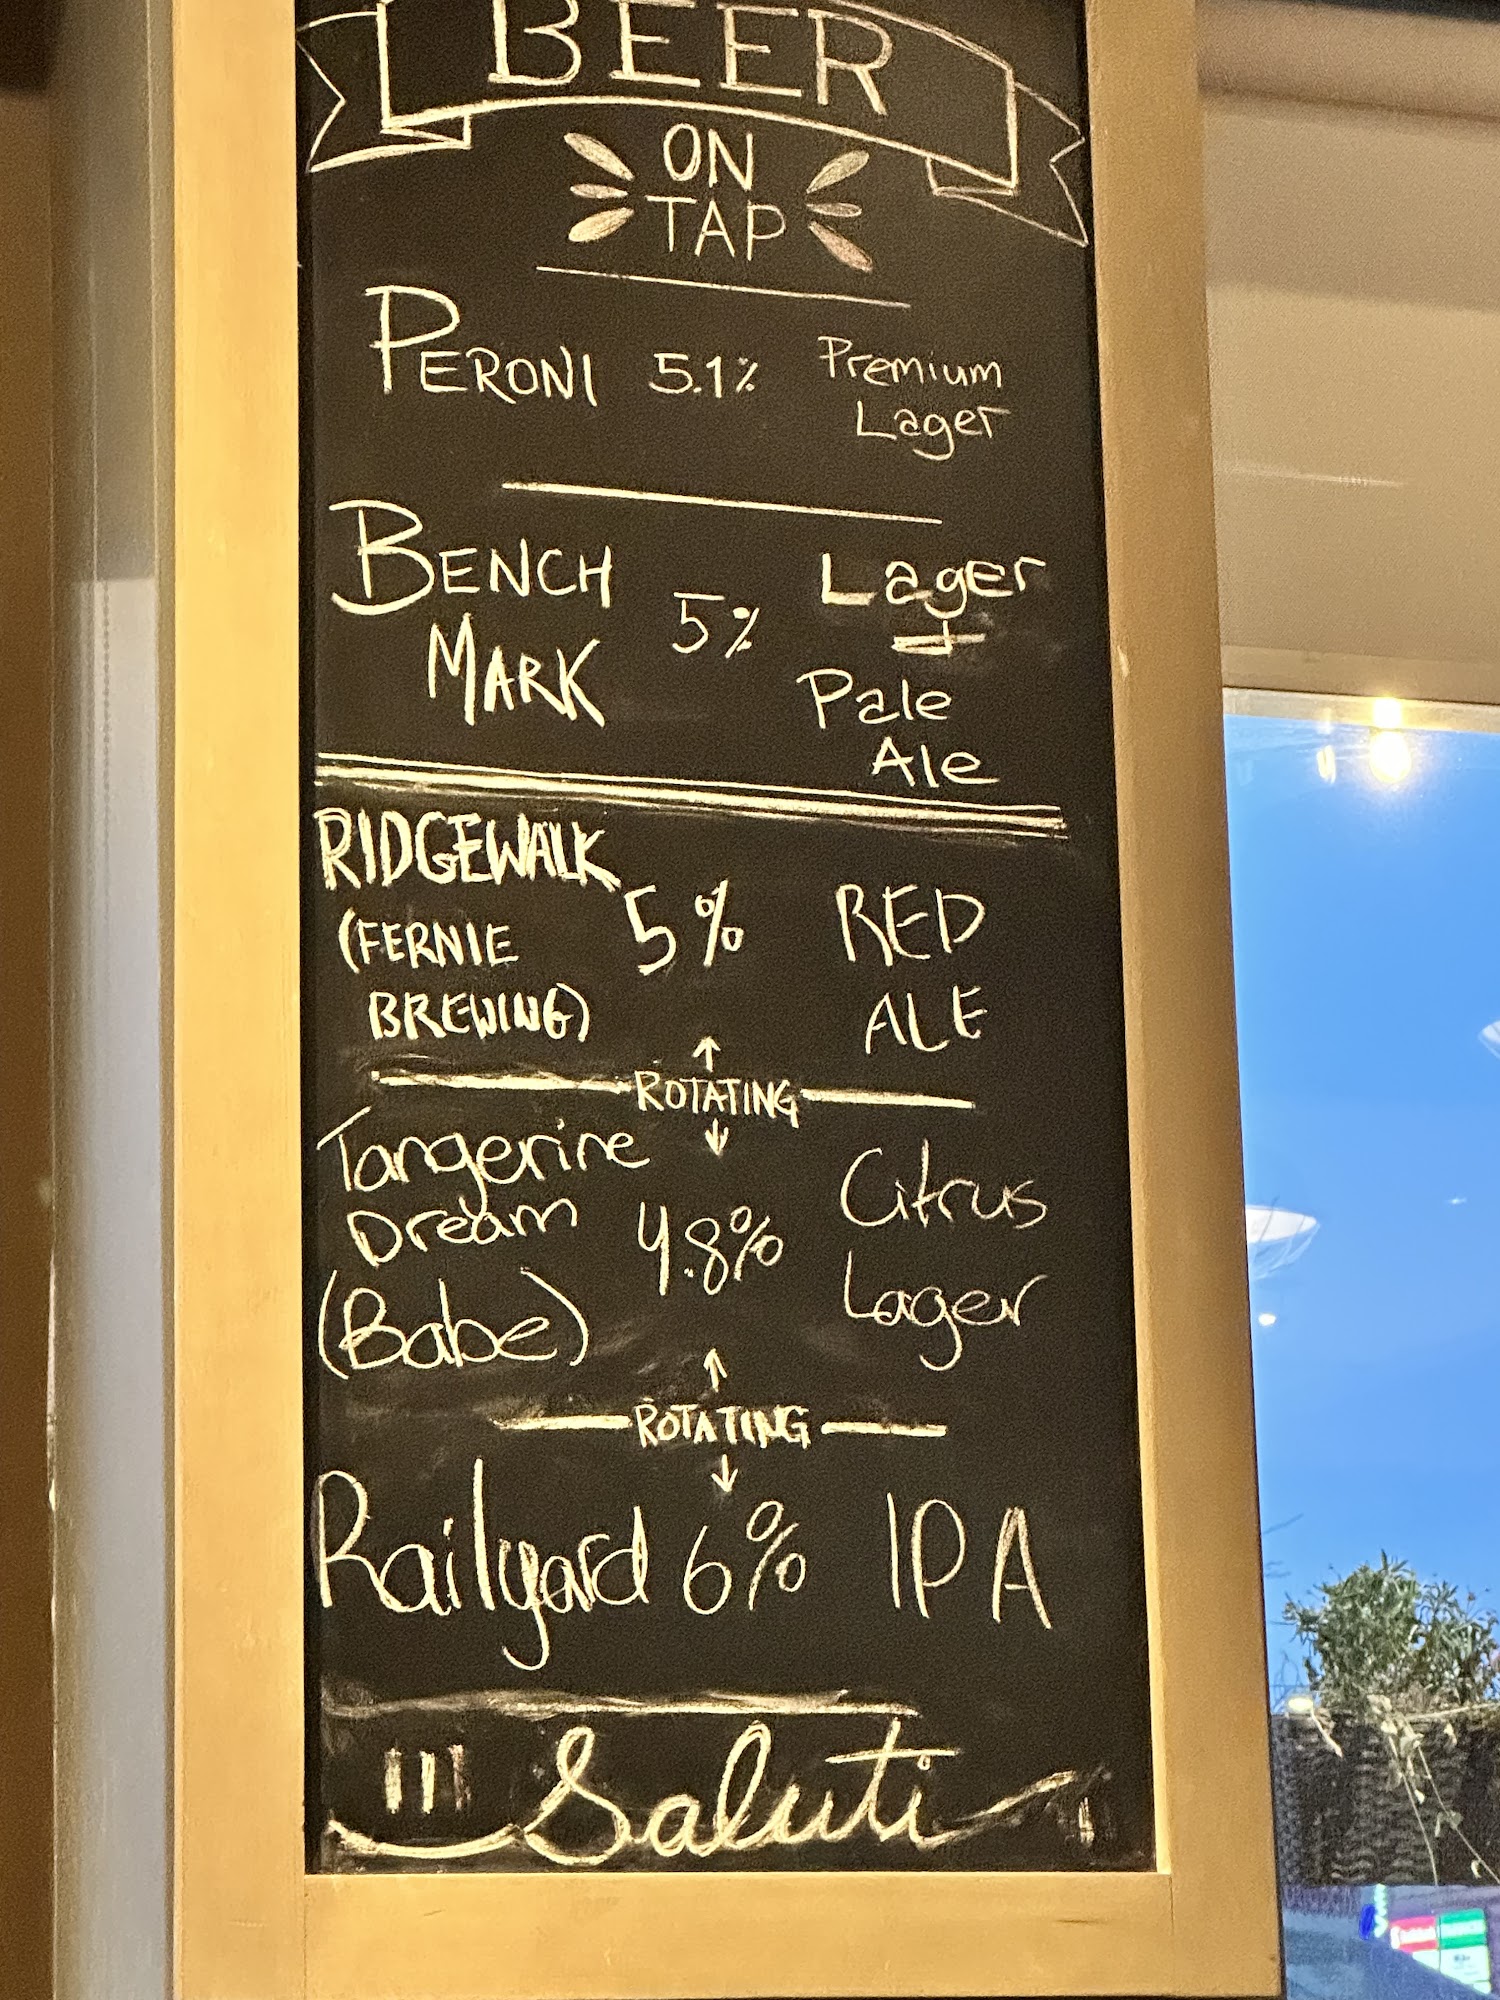 BEER
ON
TAP
PERONI 5.1% Premium
Lager
BENCH
MARK 5% Lager
+
Pale
Ale
RIDGEWALK
(FERNIE
BREWING) 5% RED
ALE
↑
ROTATING
↓
Tangerine
Dream
(Babe) 4.8% Citrus
Lager
↑
ROTATING
↓
Railyard 6% IPA
Saluti